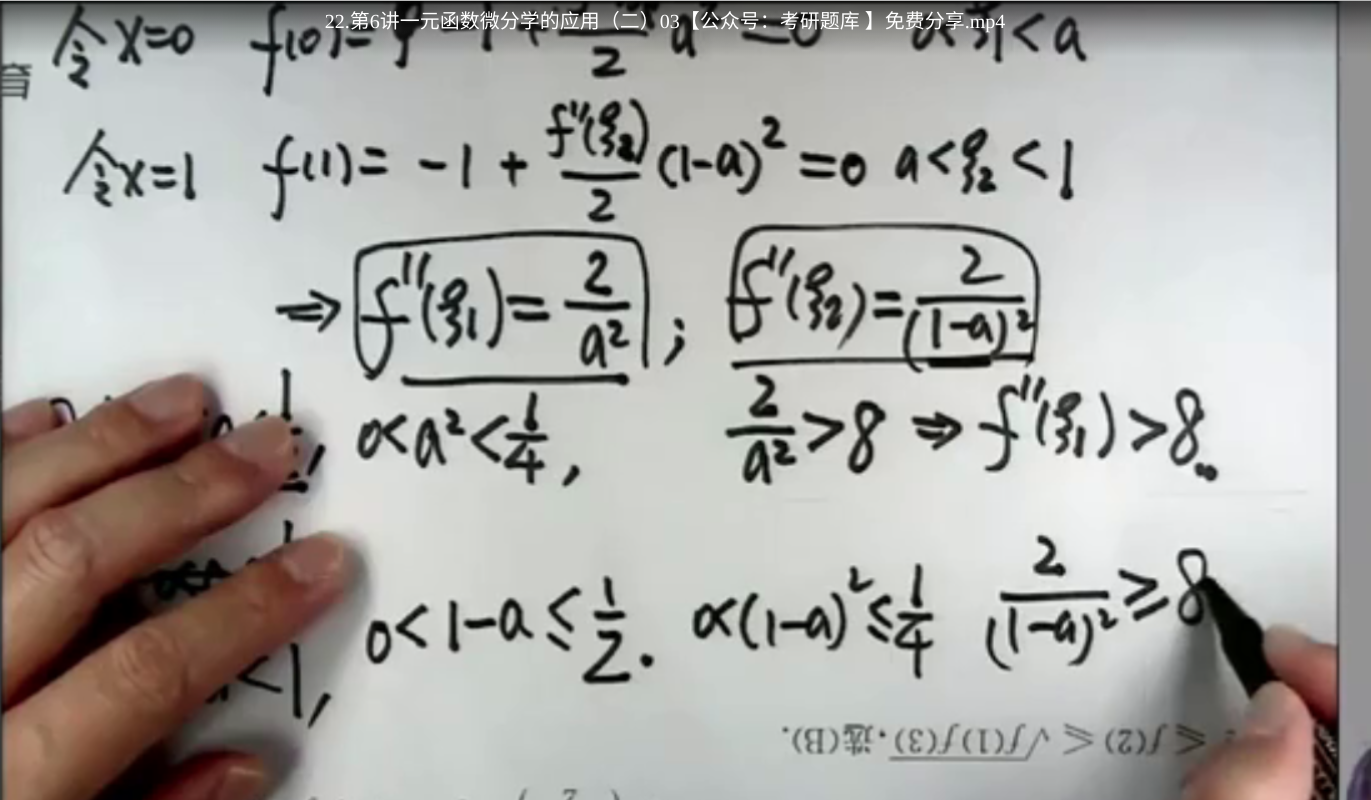 22.第6讲一元函数微分学的应用（二）03【公众号：考研题库 】免费分享.mp4
令x=0 f(0)= -1+ 2 a =0 <ξ1<a
育
令x=1 f(1)= -1 + f''(ξ2)/2 (1-a)^2 =0 a<ξ2<1
⇒ f''(ξ1)= 2/a^2 ; f''(ξ2)= 2/(1-a)^2
0<a^2<1/4, 2/a^2>8 ⇒ f''(ξ1)>8.
<1, 0<1-a≤1/2. 0<(1-a)^2≤1/4 2/(1-a)^2≥8
≤f(2)≤√f(1)f(3),选(B).